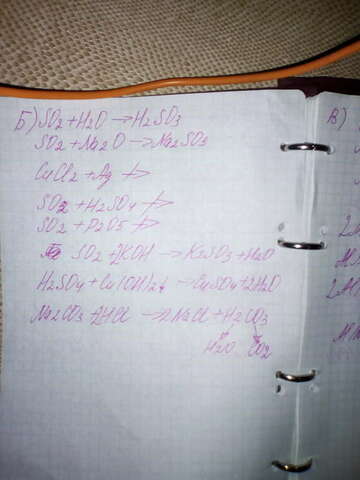 Б) SO2+H2O →H2SO3
В)
SO2+Na2O→Na2SO3
CuCl2+Ag ↛
SO2+H2SO4 ↛
SO2+P2O5 ↛
SO2+2KOH →K2SO3+H2O
H2SO4+Cu(OH)2→CuSO4+2H2O
Na2CO3+2HCl →2NaCl+H2CO3
H2O CO2